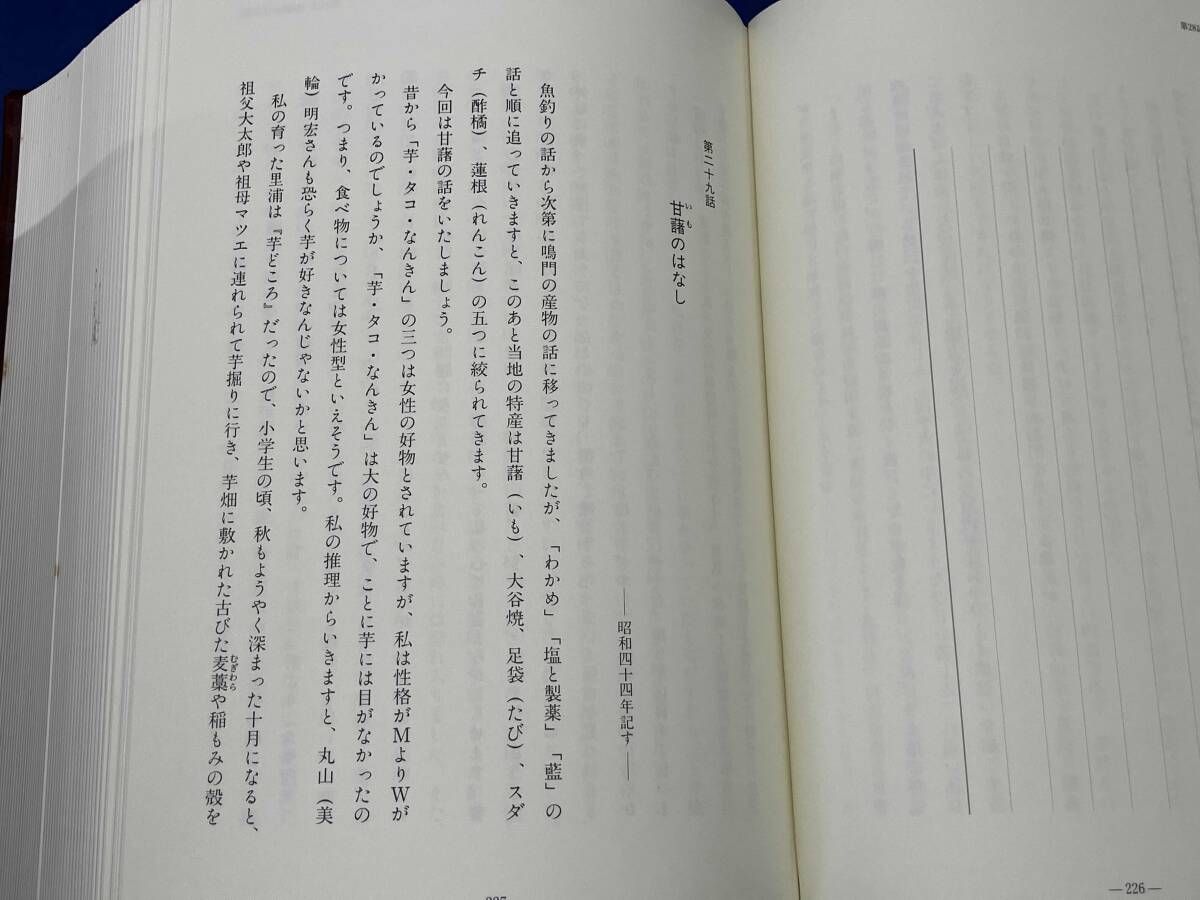 第28話
—226—
第二十九話
甘藷のはなし
いも
——昭和四十四年記す——
魚釣りの話から次第に鳴門の産物の話に移ってきましたが、「わかめ」「塩と製薬」「藍」の
話と順に追っていきますと、このあと当地の特産は甘藷(いも)、大谷焼、足袋(たび)、スダ
チ(酢橘)、蓮根(れんこん)の五つに絞られてきます。
今回は甘藷の話をいたしましょう。
昔から「芋・タコ・なんきん」の三つは女性の好物とされていますが、私は性格がMよりWが
かっているのでしょうか、「芋・タコ・なんきん」は大の好物で、ことに芋には目がなかったの
です。つまり、食べ物については女性型といえそうです。私の推理からいきますと、丸山(美
輪)明宏さんも恐らく芋が好きなんじゃないかと思います。
私の育った里浦は『芋どころ』だったので、小学生の頃、秋もようやく深まった十月になると、
祖父大太郎や祖母マツエに連れられて芋掘りに行き、芋畑に敷かれた古びた麦藁や稲もみの殻を
むぎわら